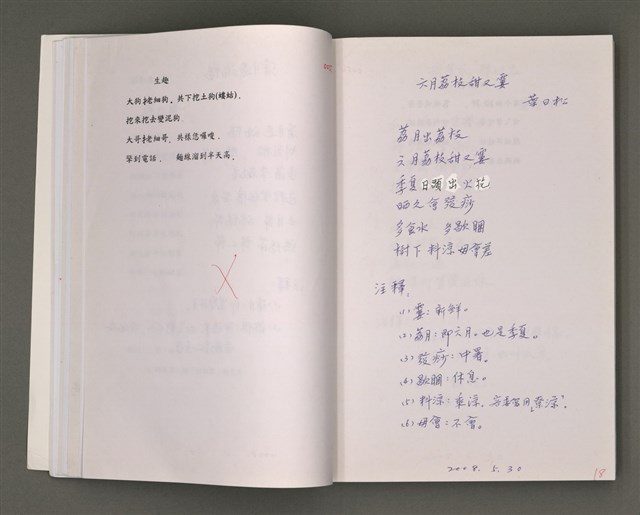 生趣
大狗㧯細狗，共下挖土狗(螻蛄)，
挖來挖去變泥狗。
大哥㧯細哥，共樣恁囉嗄，
拿到電話，麵線溜到半天高。
六月荔枝甜又䔖
葉日松
荔月出荔枝
六月荔枝甜又
季夏日頭出火花
晒久會發痧
多食水 多歇睏
樹下料涼毋會差
注釋：
(1) 新鮮。
(2) 荔月：即六月。也是季夏。
(3) 發痧：中暑。
(4) 歇睏：休息。
(5) 料涼：乘涼。
(6) 毋會：不會。
2008.5.30
18